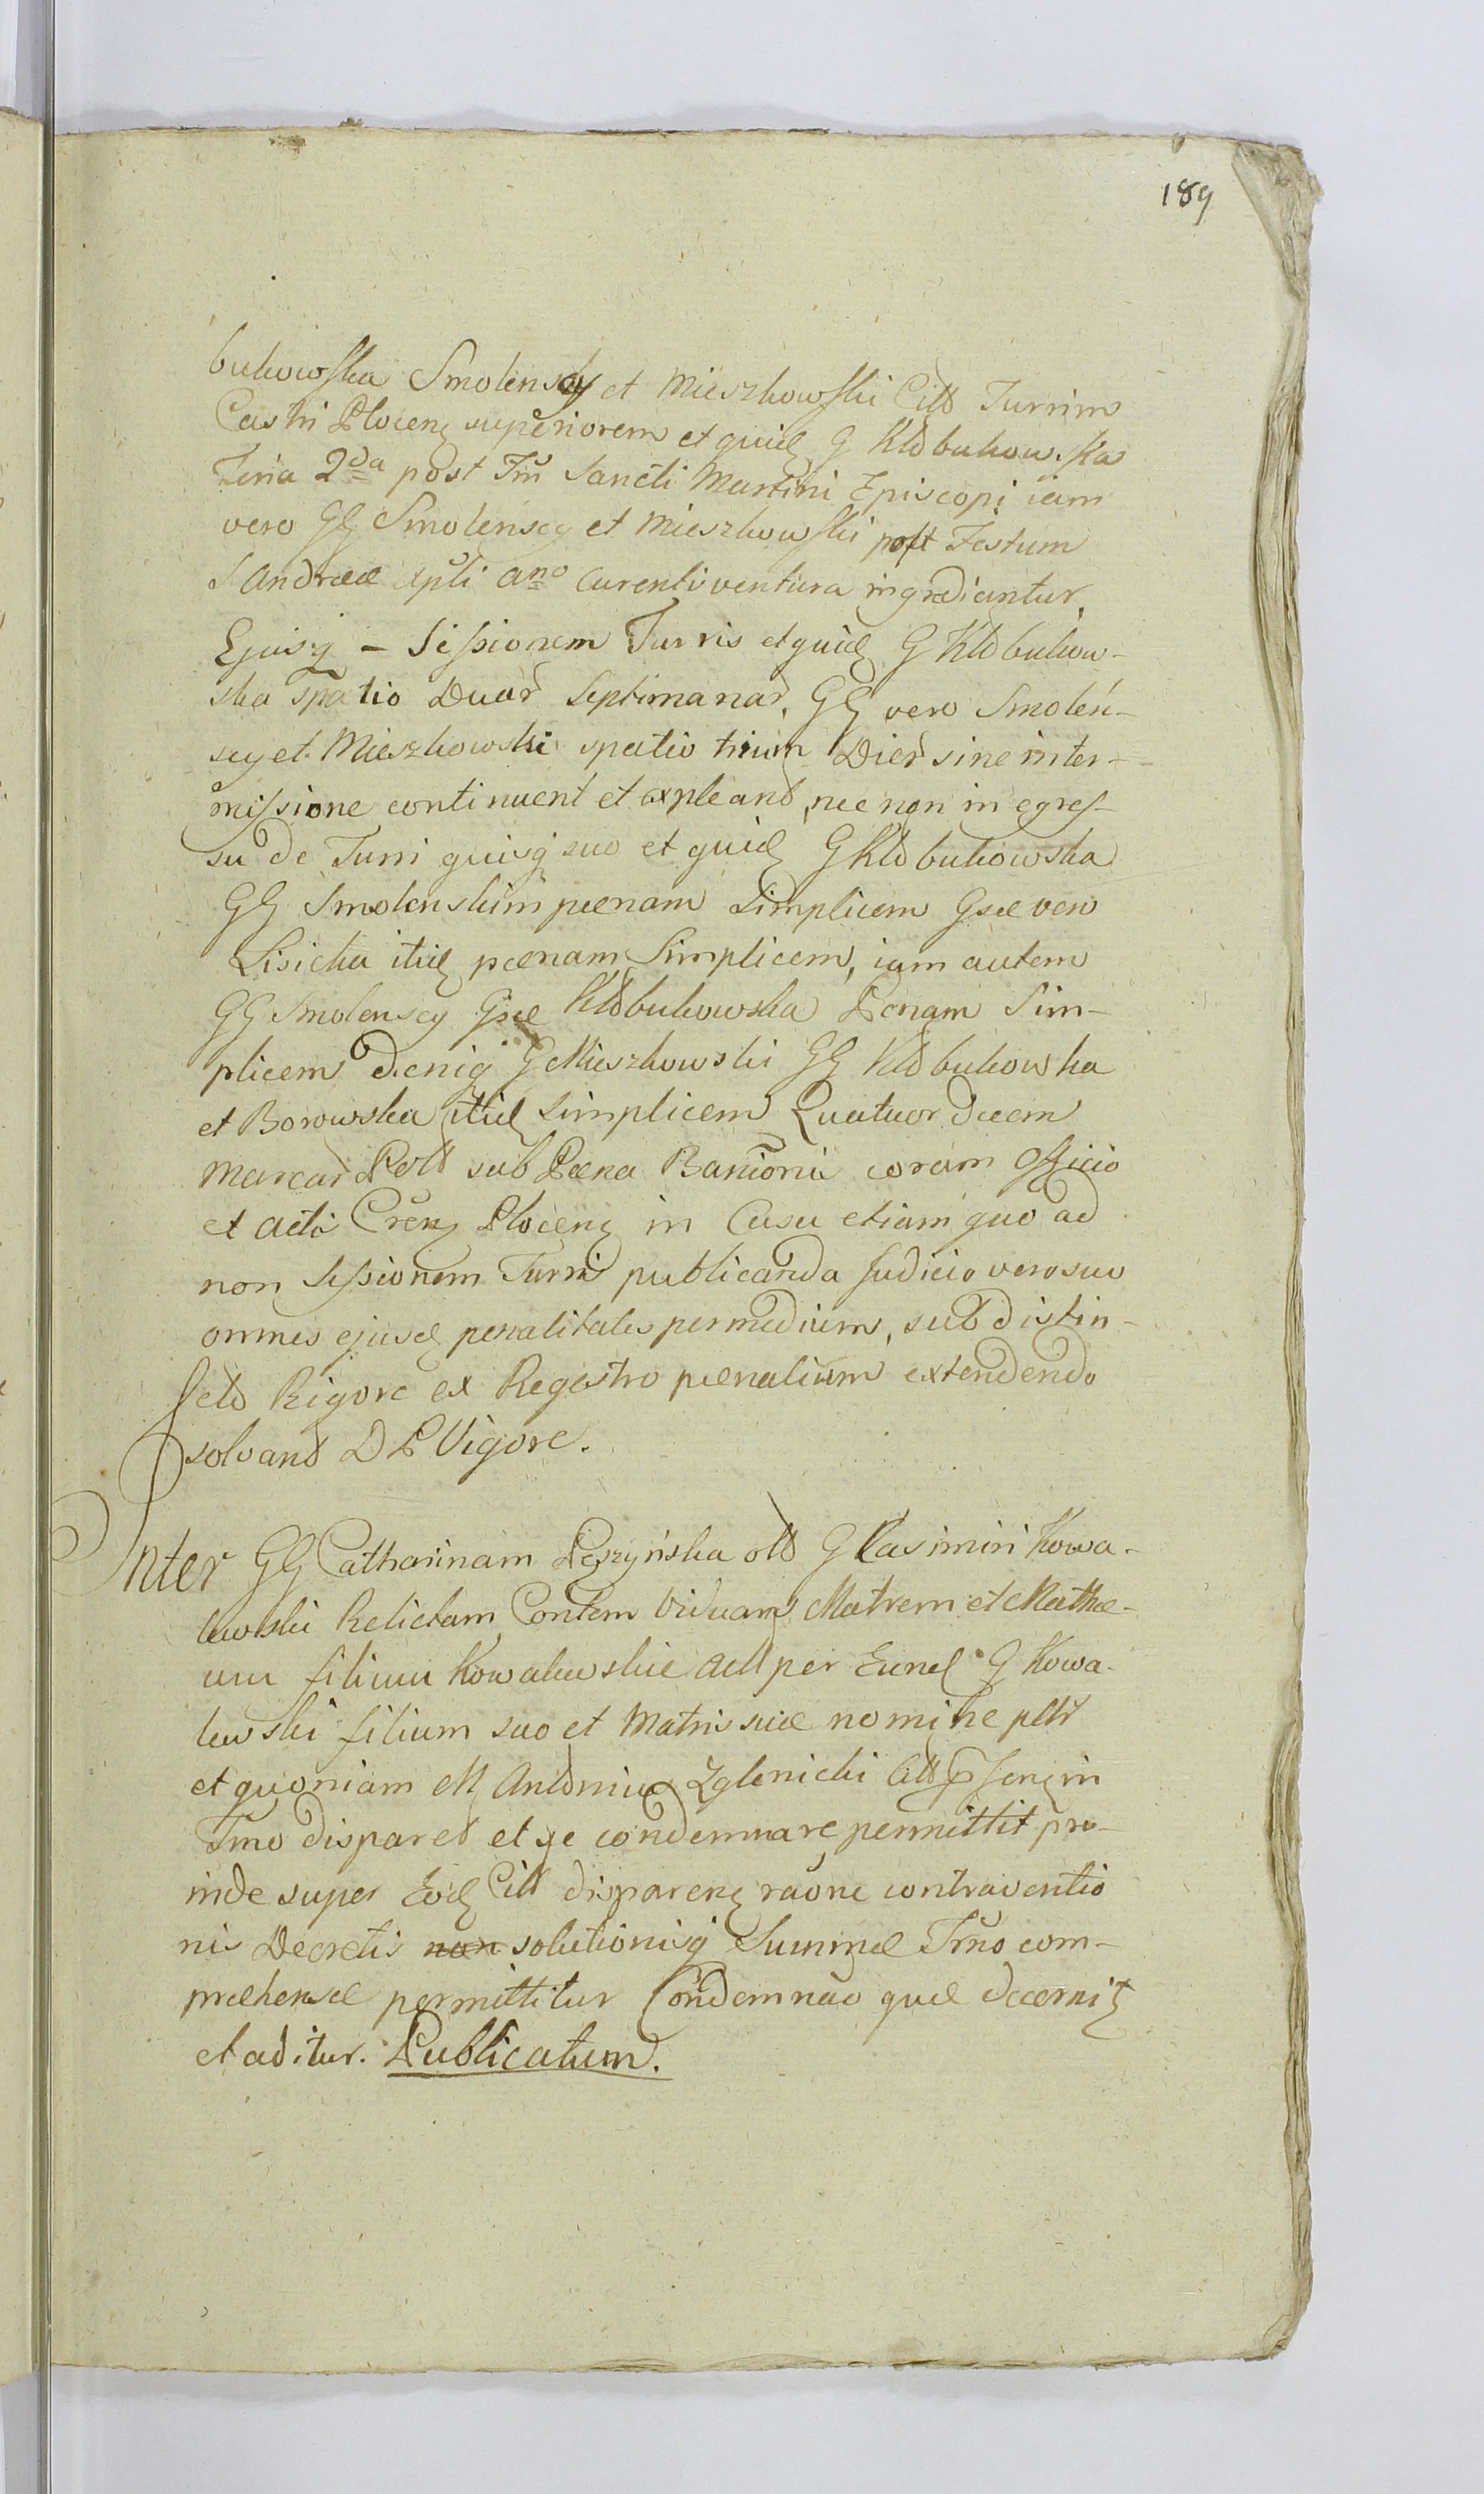 189
bukowska Smolenscy et Mieszkowski Citt Turrim
Castri Plocen superiorem et quid G Kłobukowska
Feria 2da post Fm Sancti Martini Episcopi iam
vero GG Smolenscy et Mieszkowski post Festum
S Andreæ Apli Ano Curenti ventura ingrediantur,
Ejusq - Sessionem Turris et quid G Kłobukow-
ska spatio Duar Septimanar, GG vero Smoleń-
scy et Mieszkowski spatio trium Dier sine inter-
missione continuent et expleant, nec non in egres-
su de Turri quisq suo et quid G Kłobukowska
GG Smolenskim pœnam Simplicem Gsæ vero
Lisicka itid pœnam Simplicem, iam autem
GG Smolenscy Gsæ Kłobukowska Pœnam Sim-
plicem deniq G Mieszkowski GG Kłobukowska
et Borowska itid Simplicem Quatuor decem
Marcar Poll sub Pœna Banionis coram Officio
et Actis Cren Plocen in Casu etiam quo ad
non Sessionem Turris publicanda Judicio vero suo
omnes ejusd penalitates per medium, sub distin-
cto Rigore ex Registro pœnalium extendendo
solvant D P Vigore.
Inter GG Catharinam Pęszyńska olt G Casimiri Kowa-
lewski Relictam Contem Viduam Matrem et Mathæ-
um filium Kowalewskie Act per Eund G Kowa-
lewski filium suo et Matris suæ nomine patt
et quoniam M Antonius Zglenicki Citt in
Tmo disparet et se condemnare permittit pro-
inde super Eod Citt disparen raone contraventio
nis Decretis non solutionisq Summæ Tmo com-
præhensæ permittitur Condemnao quæ decernit
et aditur. Publicatum.